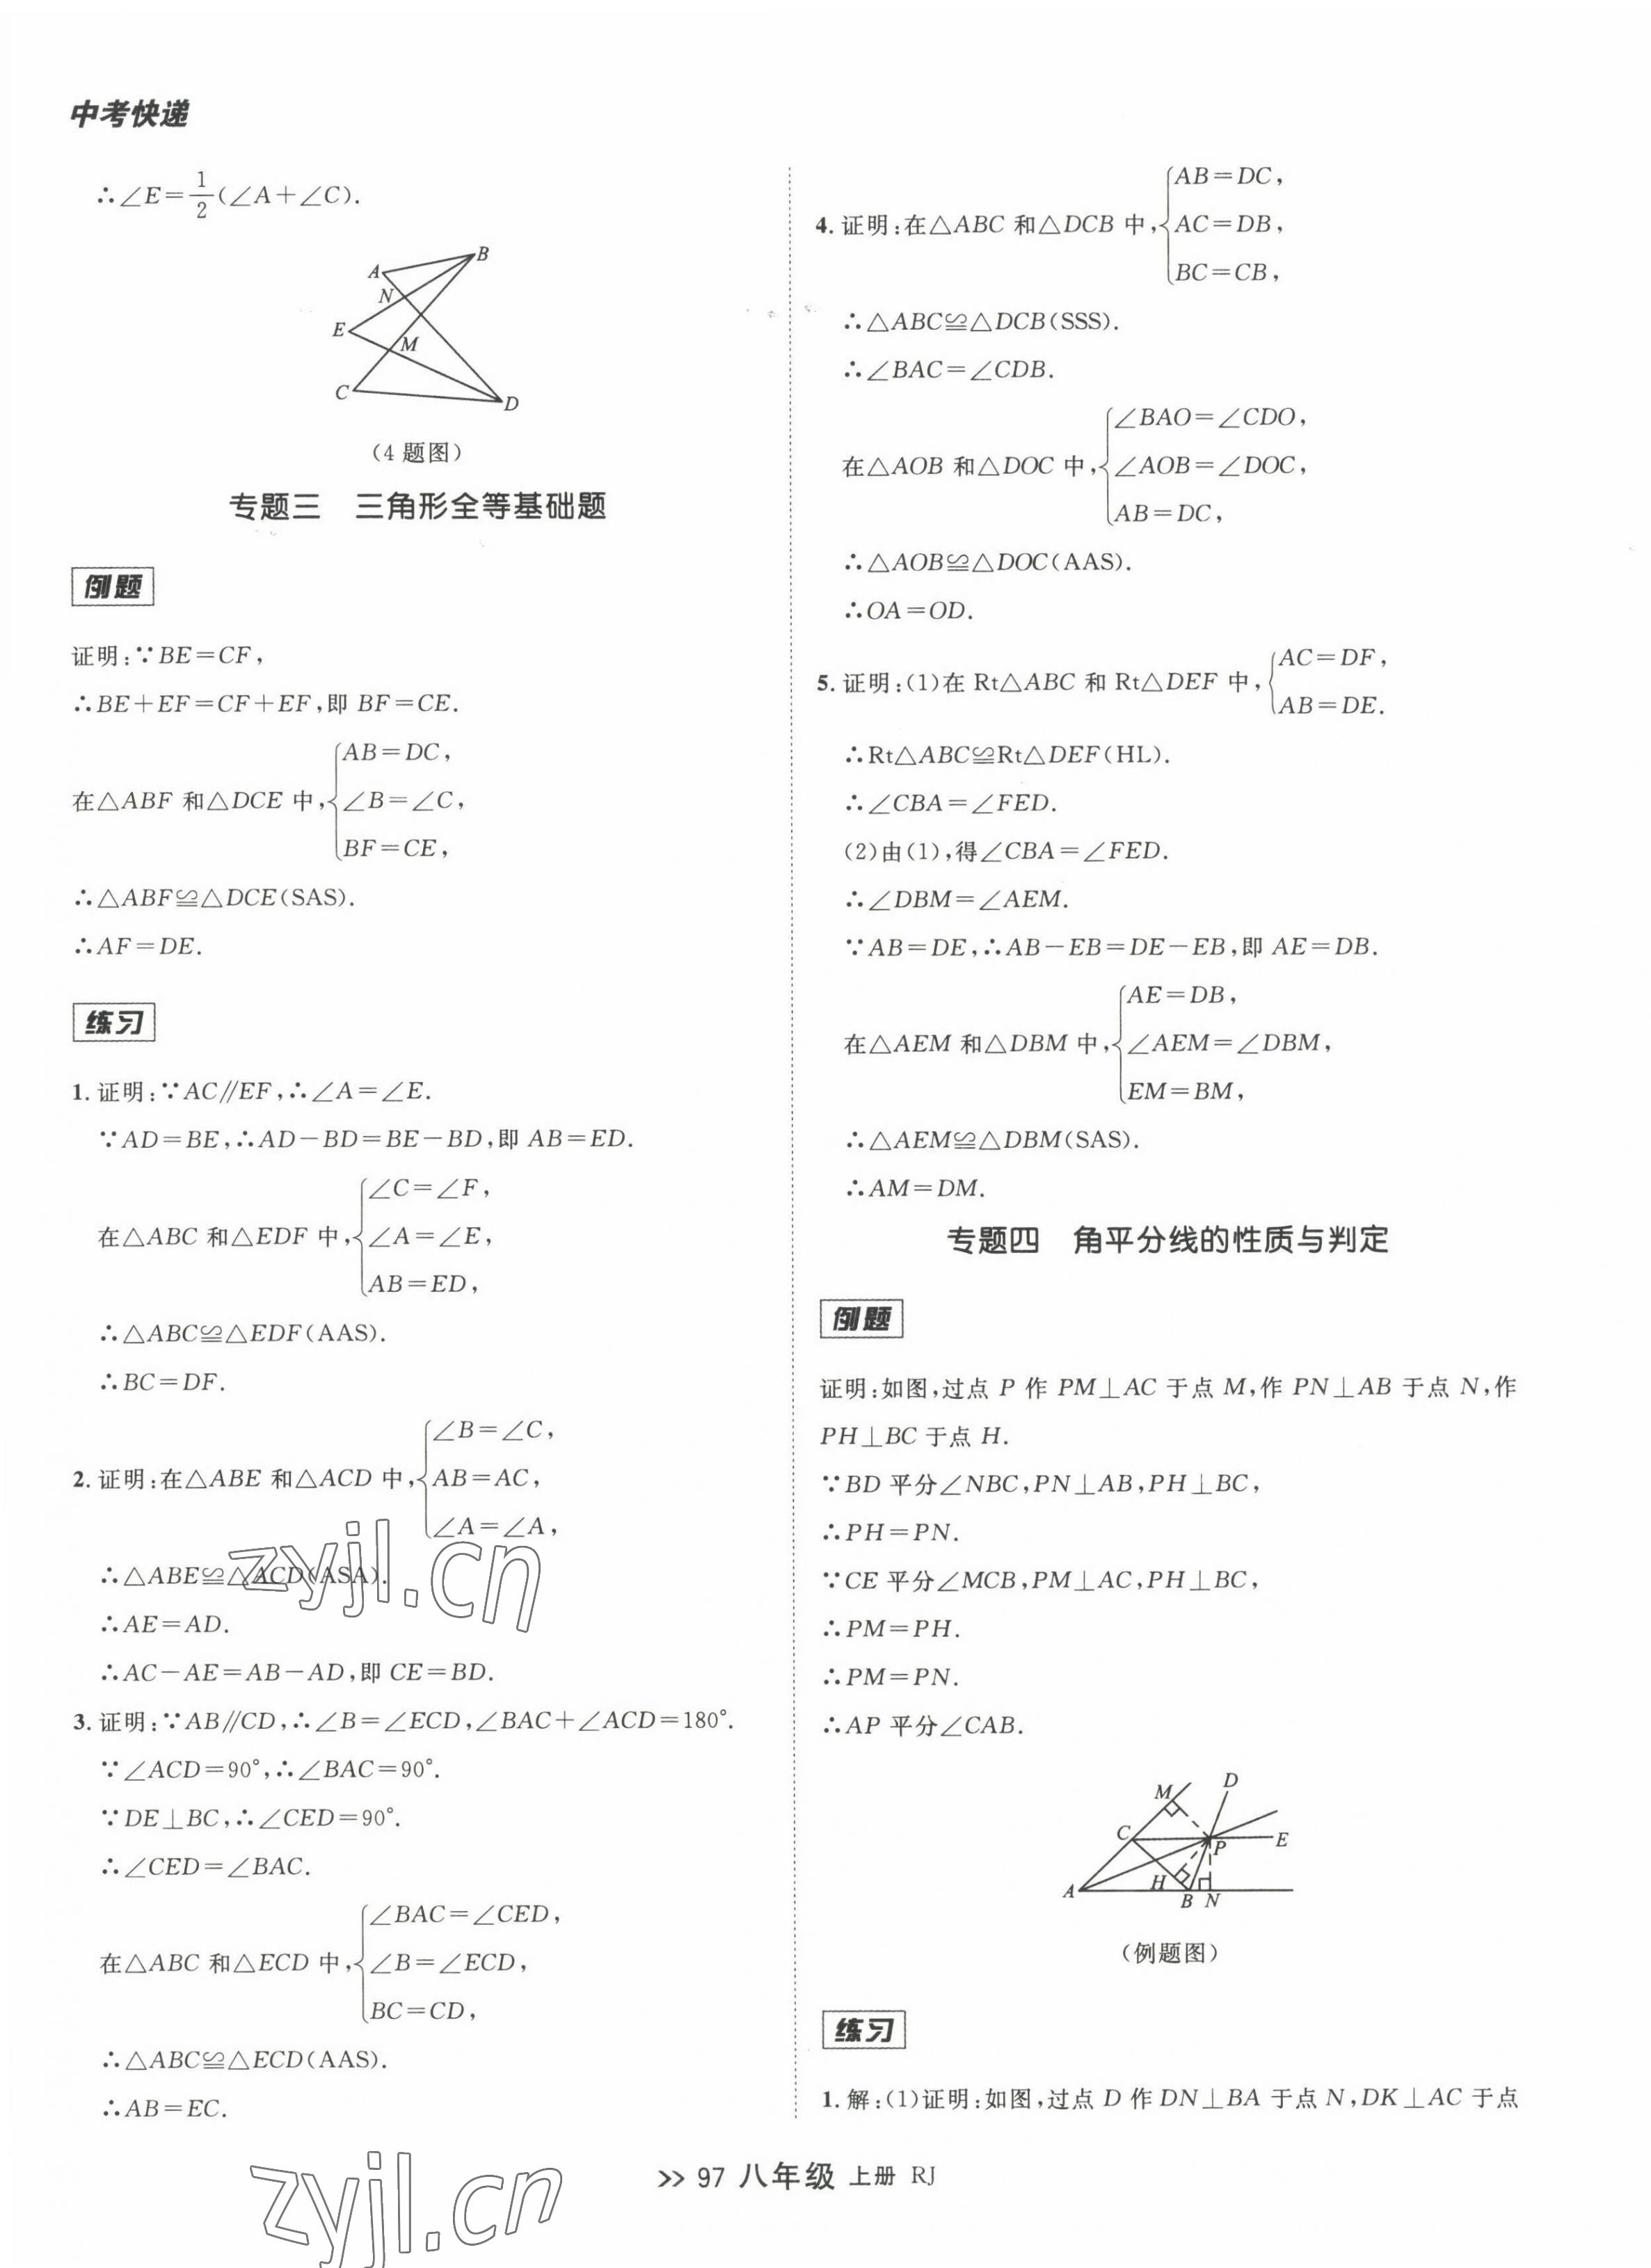 中考快递
∴∠E=1/2(∠A+∠C).
A
B
N
E
M
C
D
(4题图)
专题三 三角形全等基础题
例题
证明:∵BE=CF,
∴BE+EF=CF+EF,即BF=CE.
AB=DC,
在△ABF和△DCE中,{∠B=∠C,
BF=CE,
∴△ABF≌△DCE(SAS).
∴AF=DE.
练习
1.证明:∵AC∥EF,∴∠A=∠E.
∵AD=BE,∴AD-BD=BE-BD,即AB=ED.
∠C=∠F,
在△ABC和△EDF中,{∠A=∠E,
AB=ED,
∴△ABC≌△EDF(AAS).
∴BC=DF.
∠B=∠C,
2.证明:在△ABE和△ACD中,{AB=AC,
∠A=∠A,
∴△ABE≌△ACD(ASA).
∴AE=AD.
∴AC-AE=AB-AD,即CE=BD.
3.证明:∵AB∥CD,∴∠B=∠ECD,∠BAC+∠ACD=180°.
∵∠ACD=90°,∴∠BAC=90°.
∵DE⊥BC,∴∠CED=90°.
∴∠CED=∠BAC.
∠BAC=∠CED,
在△ABC和△ECD中,{∠B=∠ECD,
BC=CD,
∴△ABC≌△ECD(AAS).
∴AB=EC.
AB=DC,
4.证明:在△ABC和△DCB中,{AC=DB,
BC=CB,
∴△ABC≌△DCB(SSS).
∴∠BAC=∠CDB.
∠BAO=∠CDO,
在△AOB和△DOC中,{∠AOB=∠DOC,
AB=DC,
∴△AOB≌△DOC(AAS).
∴OA=OD.
AC=DF,
5.证明:(1)在Rt△ABC和Rt△DEF中,{
AB=DE.
∴Rt△ABC≌Rt△DEF(HL).
∴∠CBA=∠FED.
(2)由(1),得∠CBA=∠FED.
∴∠DBM=∠AEM.
∵AB=DE,∴AB-EB=DE-EB,即AE=DB.
AE=DB,
在△AEM和△DBM中,{∠AEM=∠DBM,
EM=BM,
∴△AEM≌△DBM(SAS).
∴AM=DM.
专题四 角平分线的性质与判定
例题
证明:如图,过点P作PM⊥AC于点M,作PN⊥AB于点N,作
PH⊥BC于点H.
∵BD平分∠NBC,PN⊥AB,PH⊥BC,
∴PH=PN.
∵CE平分∠MCB,PM⊥AC,PH⊥BC,
∴PM=PH.
∴PM=PN.
∴AP平分∠CAB.
M
D
C
P
E
A
H
B
N
(例题图)
练习
1.解:(1)证明:如图,过点D作DN⊥BA于点N,DK⊥AC于点
>> 97 八年级 上册 RJ
zyjl.cn
zyjl.cn